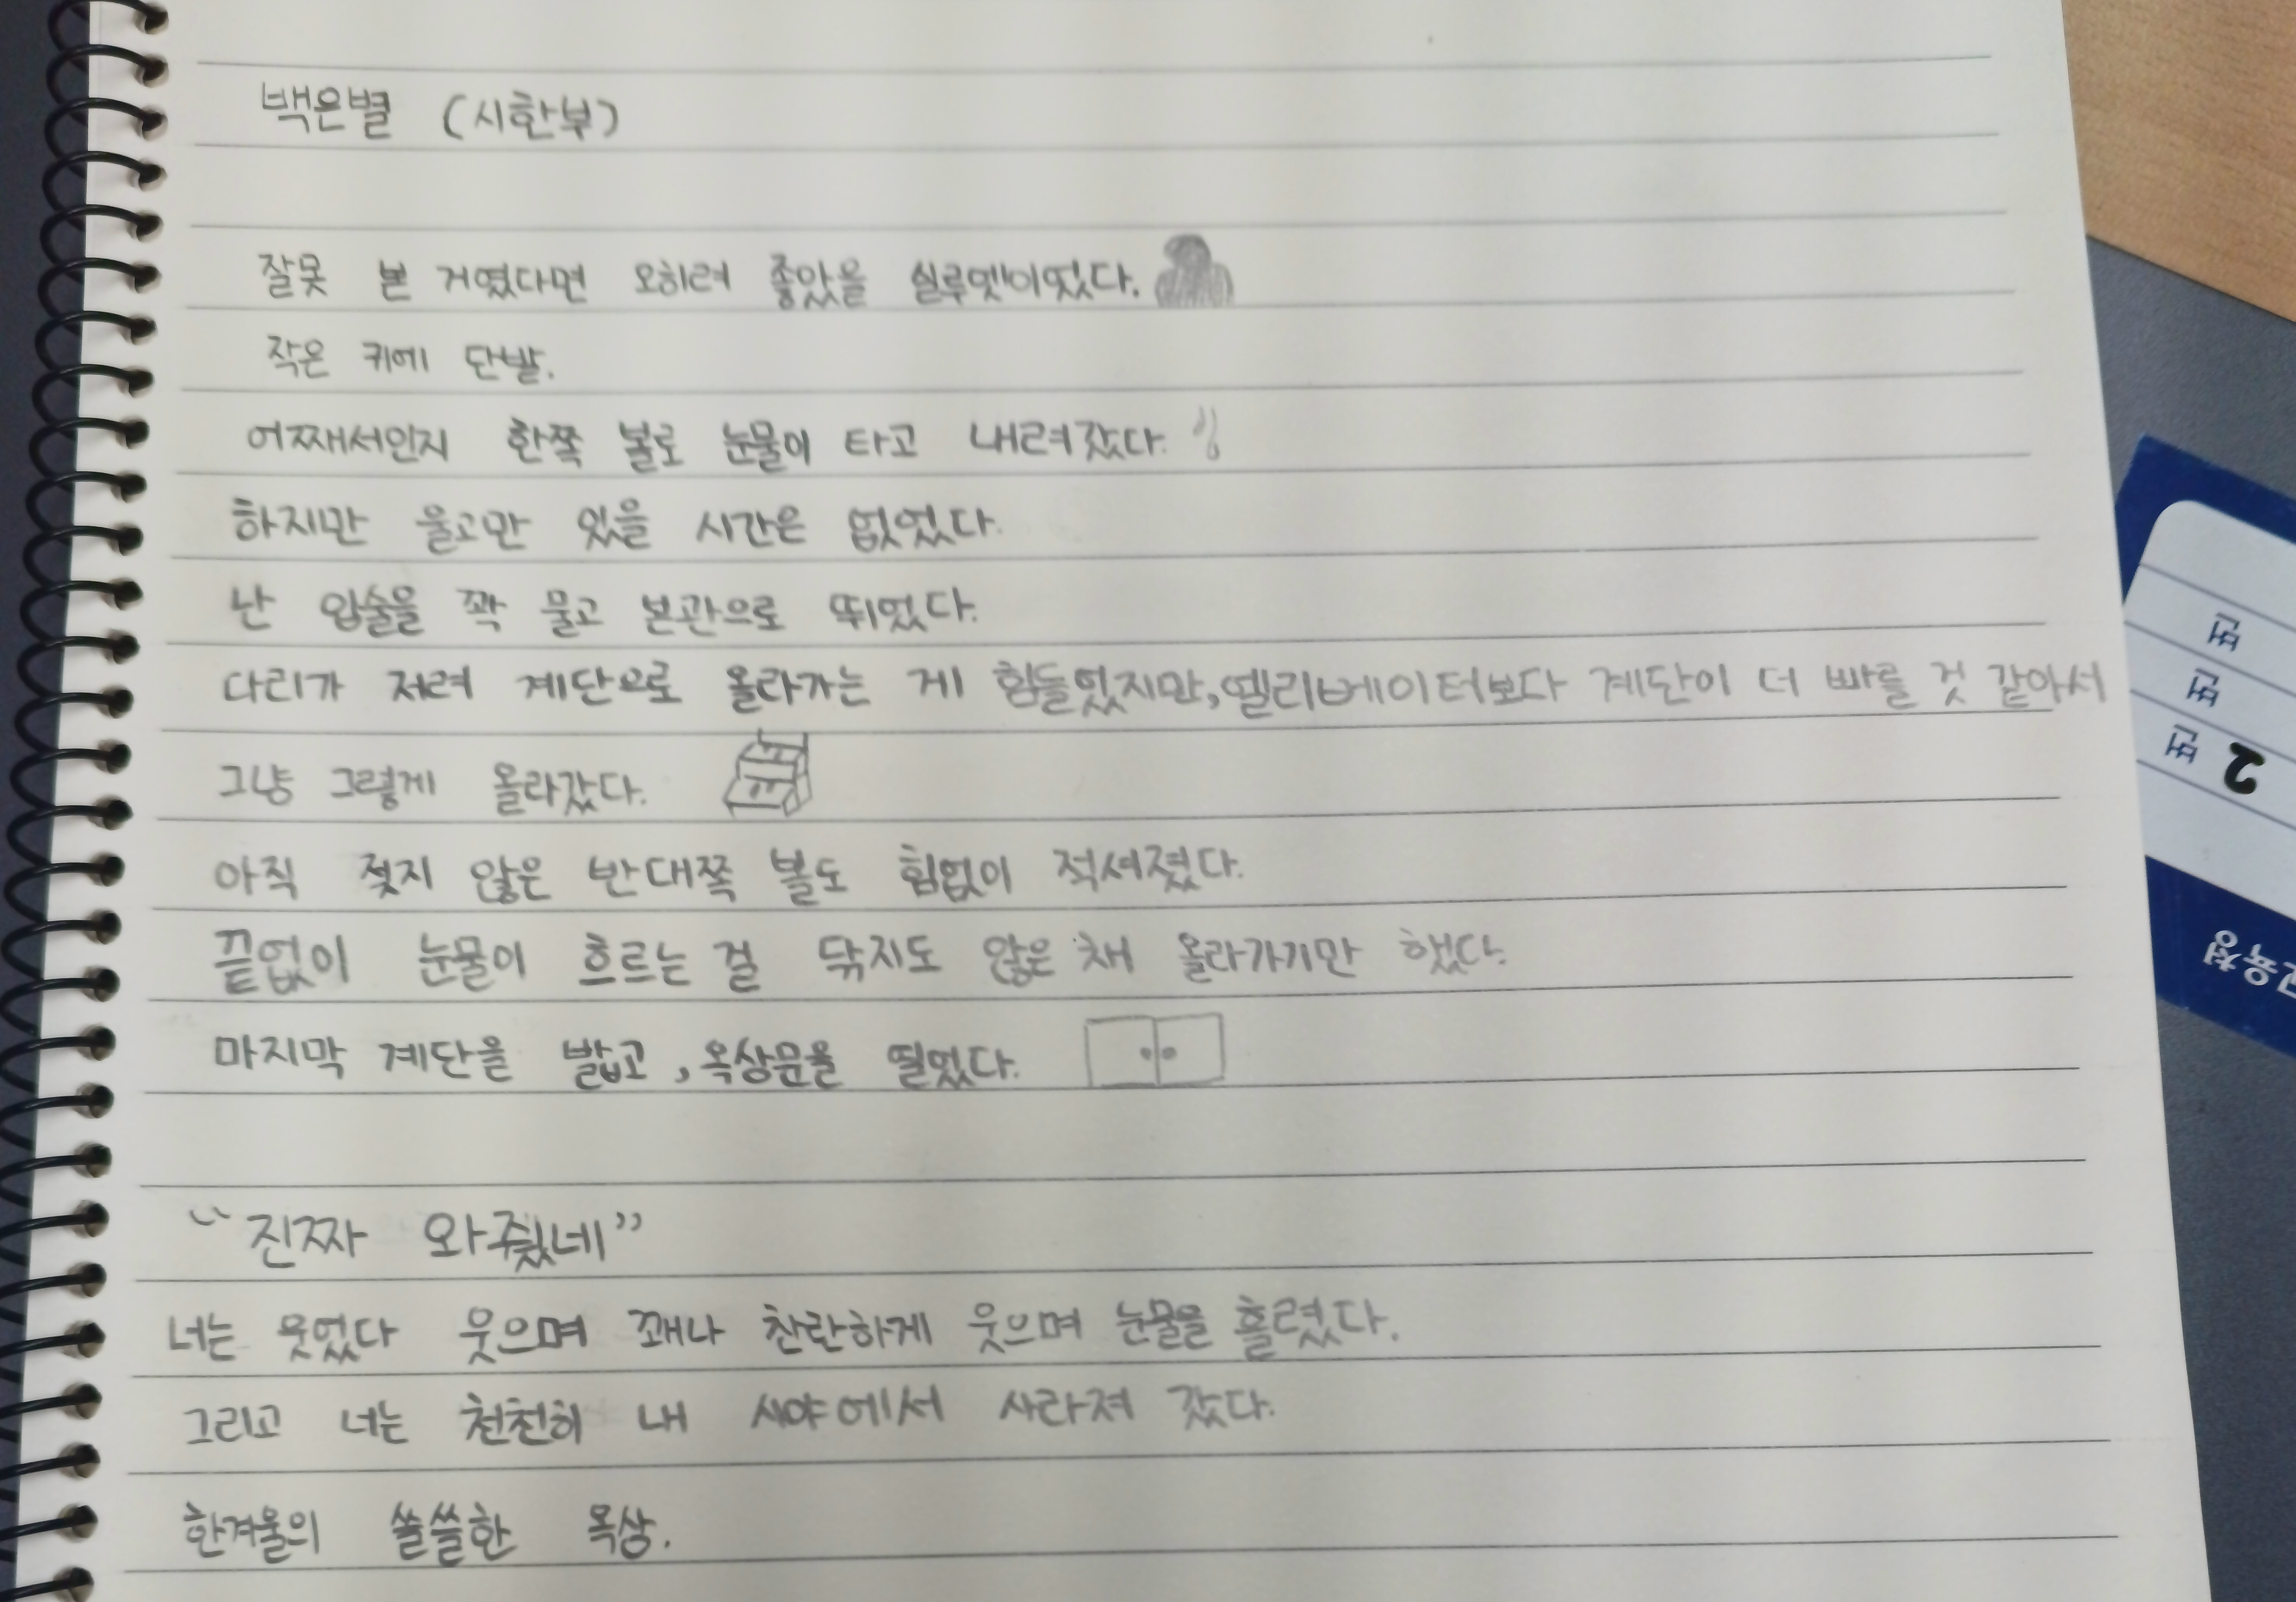 백은별 (시한부)
잘못 본 거였다면 오히려 좋았을 실루엣이었다.
작은 키에 단발.
어째서인지 한쪽 볼로 눈물이 타고 내려갔다.
하지만 울고만 있을 시간은 없었다.
난 입술을 꽉 물고 본관으로 뛰었다.
다리가 저려 계단으로 올라가는 게 힘들었지만, 엘리베이터보다 계단이 더 빠를 것 같아서
그냥 그렇게 올라갔다.
아직 젖지 않은 반대쪽 볼도 힘없이 적셔졌다.
끝없이 눈물이 흐르는 걸 닦지도 않은 채 올라가기만 했다.
마지막 계단을 밟고, 옥상문을 열었다.
“진짜 와줬네”
너는 웃었다 웃으며 꽤나 찬란하게 웃으며 눈물을 흘렸다.
그리고 너는 천천히 내 시야에서 사라져 갔다.
한겨울의 쓸쓸한 옥상.
번
번
2 번
교육청